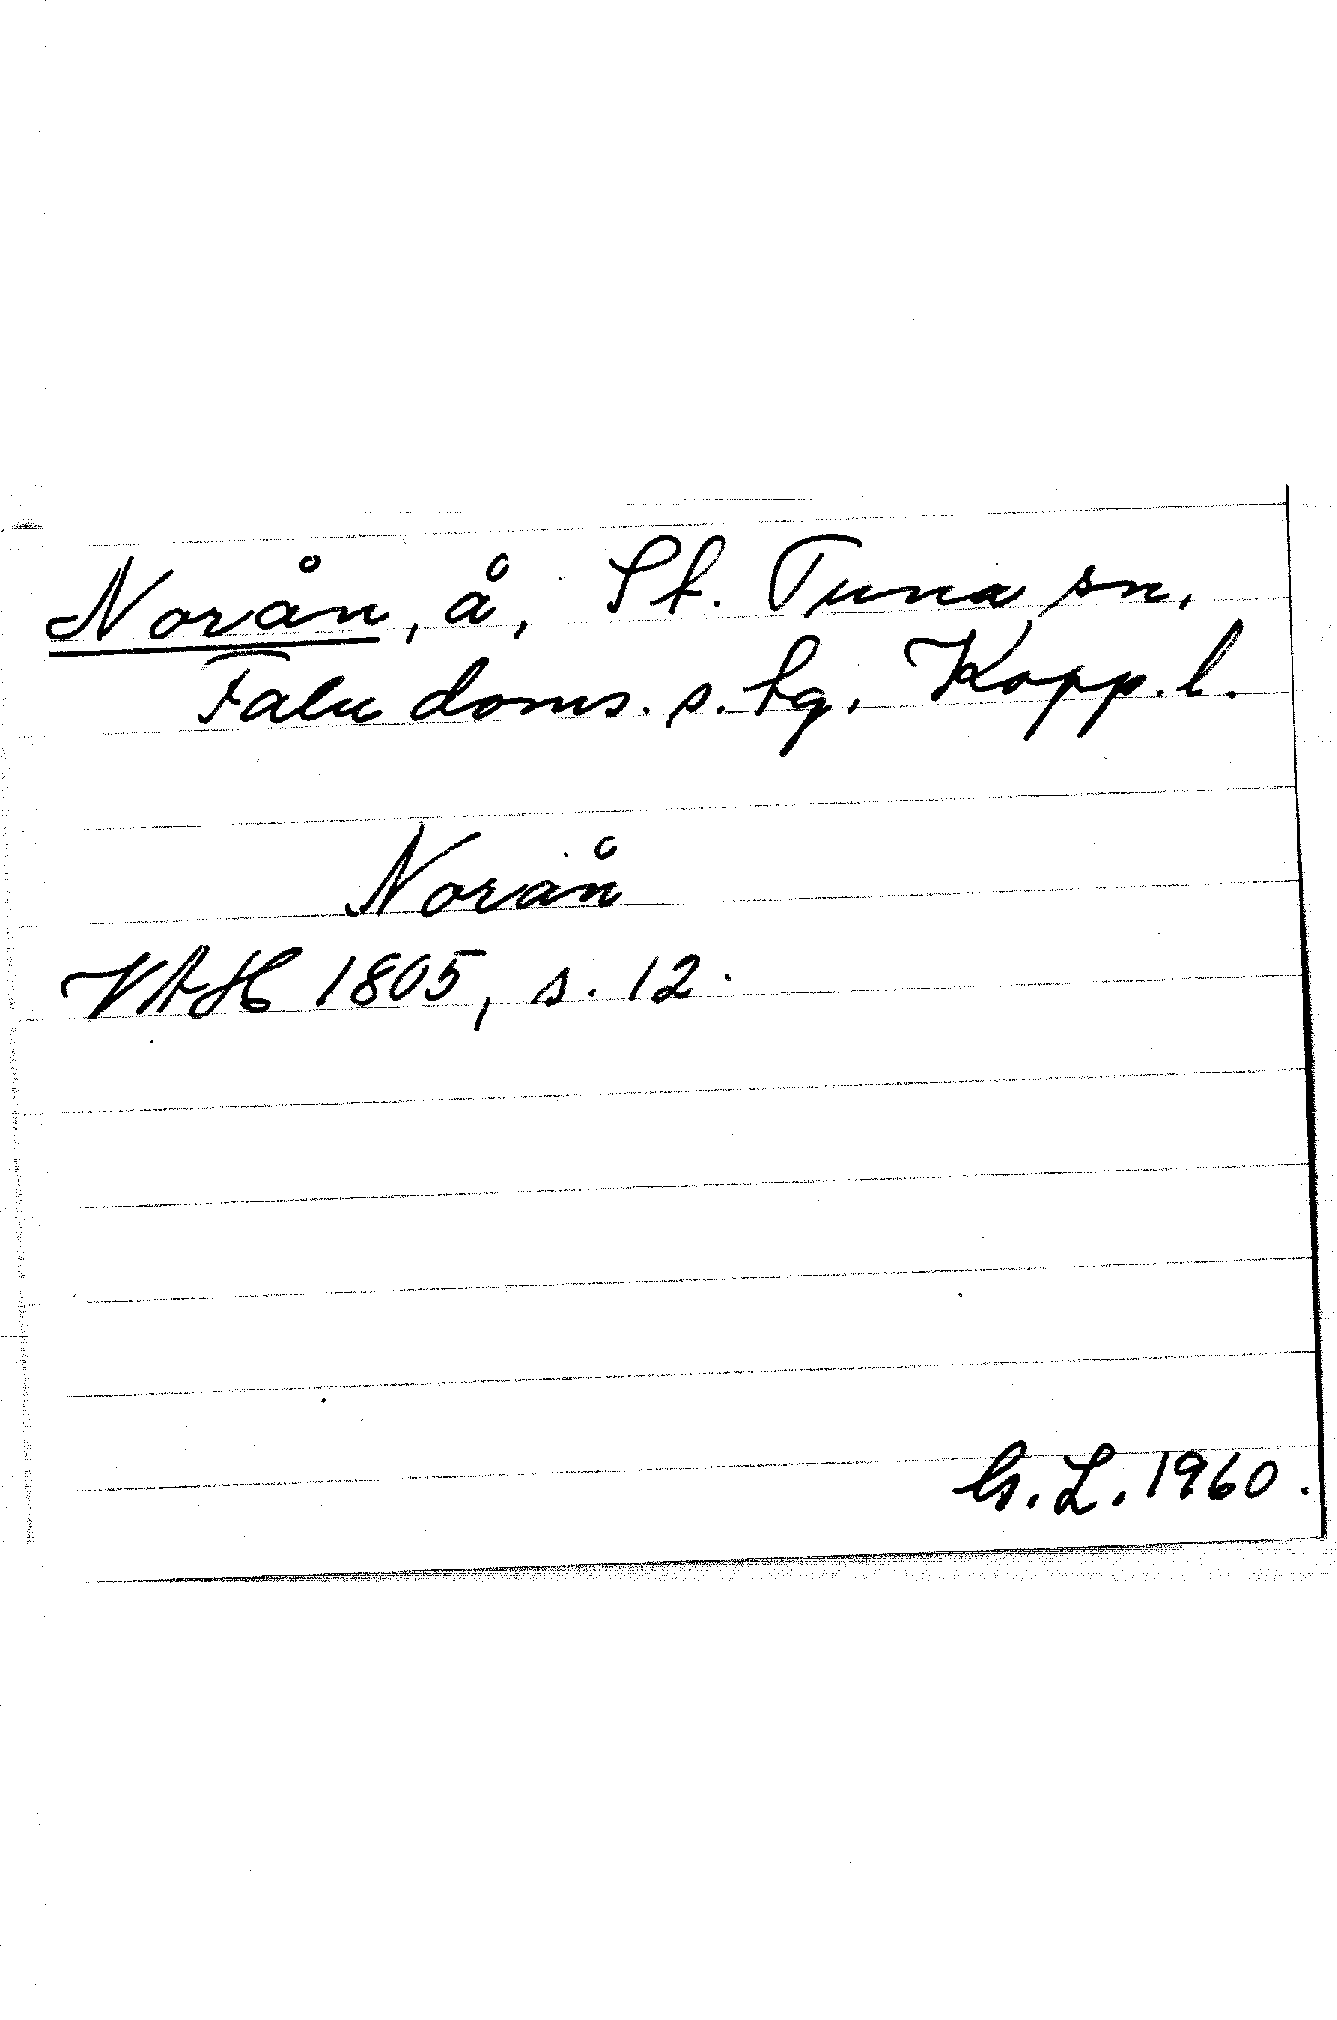 Norån, å, St. Tuna sn,
Falu doms. s. tg. Kopp. l.
Norån
VAH 1805, s. 12.
G. L. 1960.